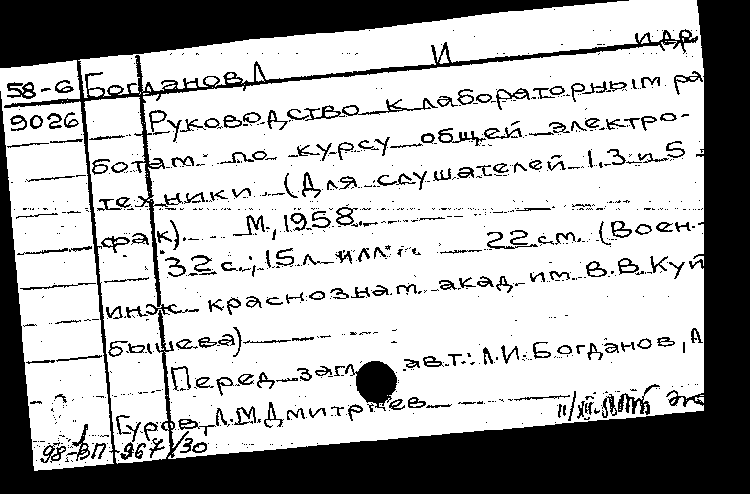 58-6 Богданов, Л И и др
9026 Руководство к лабораторным ра
ботам по курсу общей электро-
техники (Для слушателей 1, 3 и 5
фак). М., 1958.
32 с.; 15 л. илл. 22 см. (Воен.-
инж. краснознам. акад. им. В.В. Куй
бышева)
Перед загл. авт.: Л.И. Богданов, А
Гуров, Л.М. Дмитриев
98-ВП-967/30